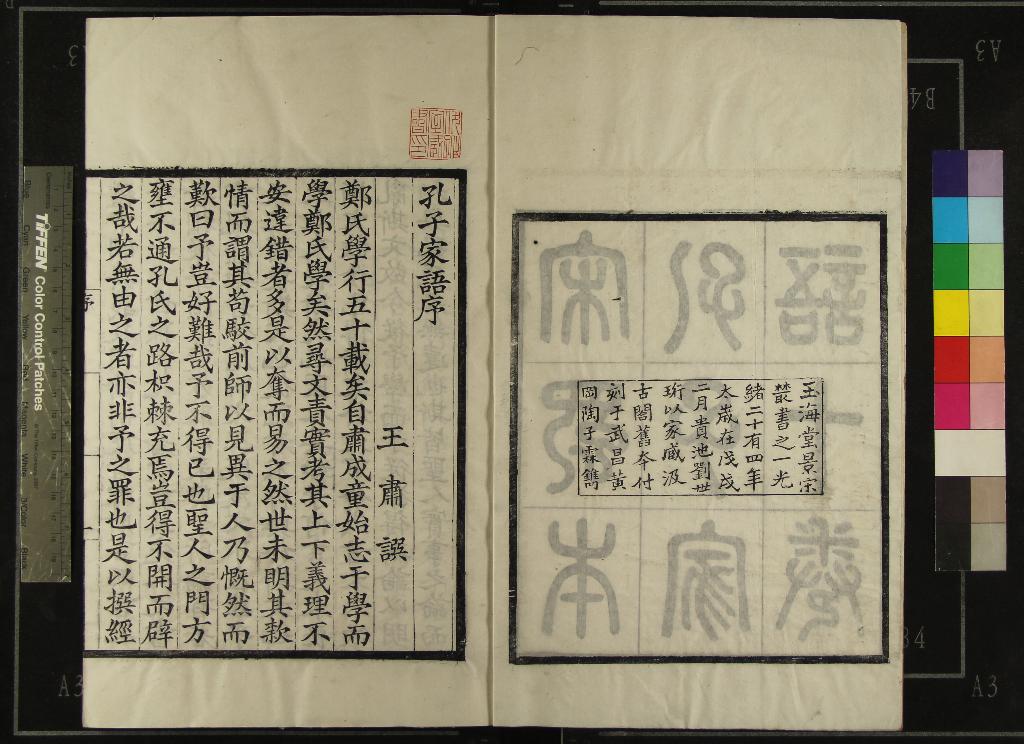 玉海堂景宋
叢書之一光
緒二十有四年
太歲在戊戌
二月貴池劉世
珩以家臧汲
古閣舊夲付
刻于武昌黃
岡陶子霖鐫
孔子家語序
王肅譔
鄭氏學行五十載矣自肅成童始志于學而
學鄭氏學矣然尋文責實考其上下義理不
安違錯者多是以奪而易之然世未明其款
情而謂其苟駮前師以見異于人乃慨然而
歎曰予豈好難哉予不得已也聖人之門方
壅不通孔氏之路枳棘充焉豈得不開而辟
之哉若無由之者亦非予之罪也是以撰經
序
TIFFEN Color Control Patches
A3
B4
A3
A3